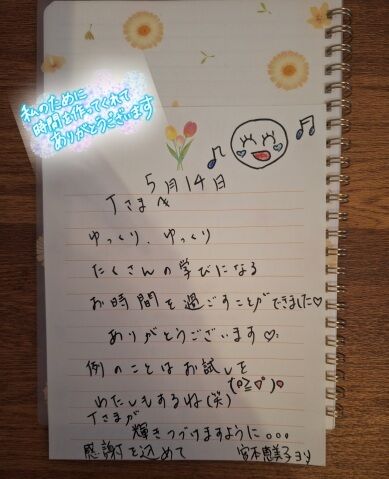 私のために
時間を作ってくれて
ありがとうございます
5月14日
Tさまへ
ゆっくり、ゆっくり
たくさんの学びになる
お時間を過ごすことができました♡
ありがとうございます♡
例のことはお試しを
わたしもするね(笑)
Tさまが
輝きつづけますように。。。
感謝を込めて
宮本恵美子より